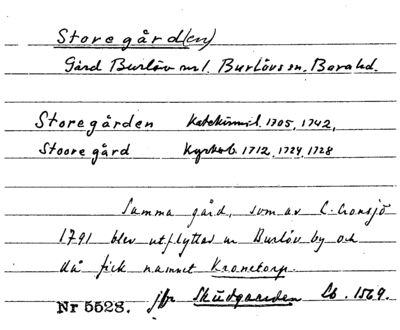 Storegård(en)
Gård Burlöv nr 1. Burlövs sn. Bara hd.
Storegården Katekismil. 1705, 1742,
Stoore gård Kyrkob. 1712, 1724, 1728
Samma gård, som av C. Cronsjö
1791 blev utflyttad ur Burlöv by och
då fick namnet Kronetorp.
Nr 5528. jfr Skudgaarden Lb. 1569.